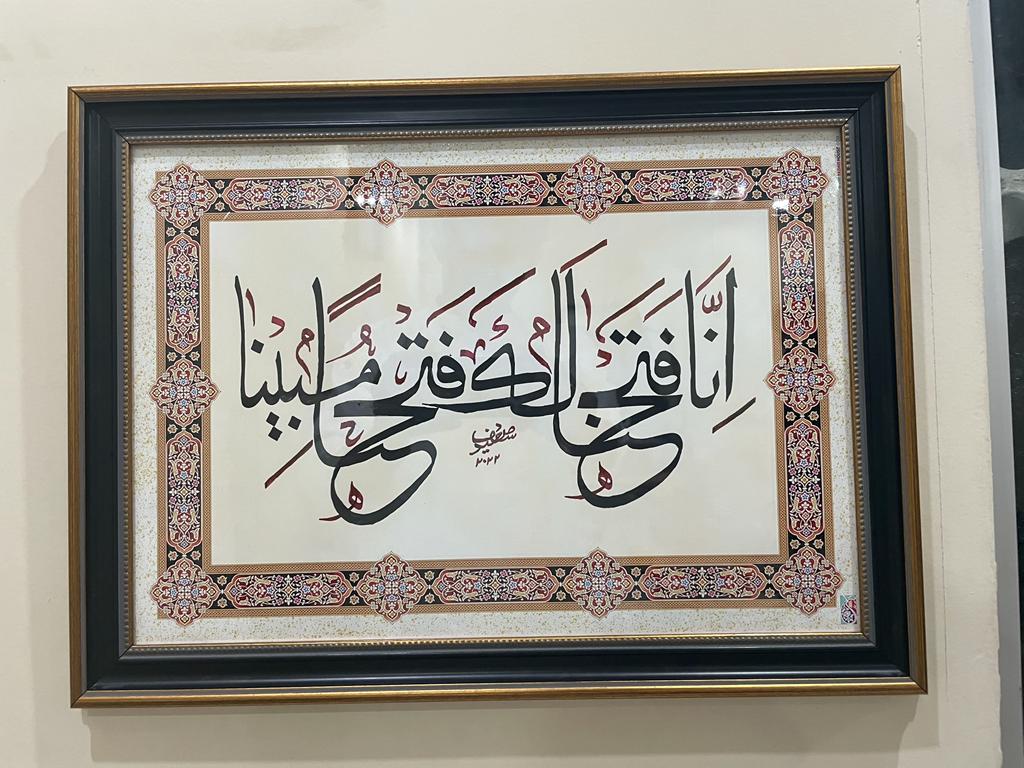 اِنَّا فَتَحْنَا لَكَ فَتْحًا مُّبِينًا
٢٠٢٢